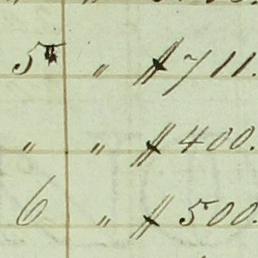 5 " $711.
" " $400.
6 " $500.